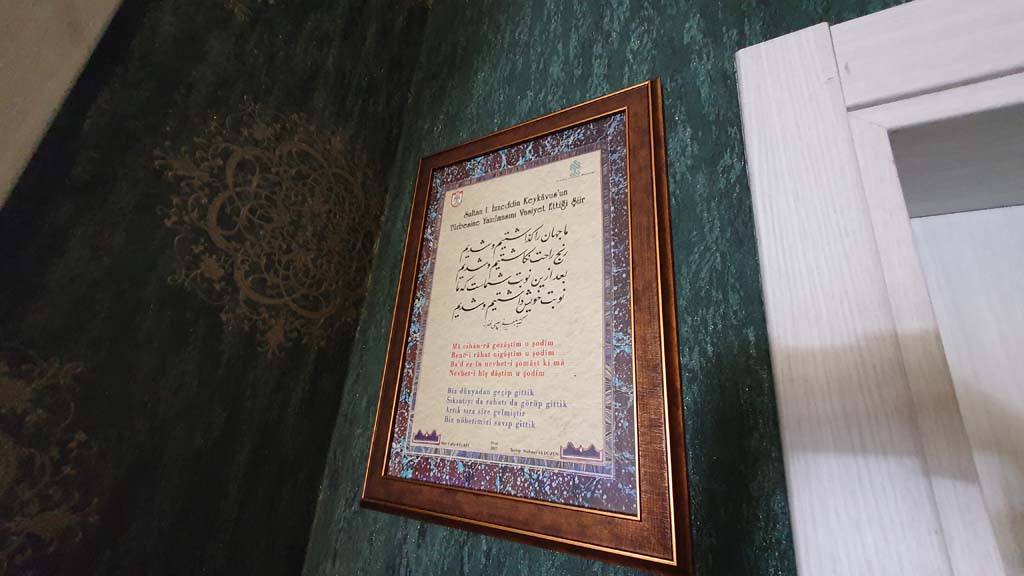 Sultan I. İzzeddin Keykâvus'un
Türbesine Yazılmasını Vasiyet Ettiği Şiir
ما جهان را گذاشتیم و شدیم
رنج راحت نگاشتیم و شدیم
بعد ازین نوبت شماست که ما
نوبت خویش داشتیم و شدیم
Mâ cihân-râ gozâştim u şodim
Renc-i râhat nigâştim u şodim
Ba'd ez-în nevbet-i şomâst ki mâ
Nevbet-i hîş dâştim u şodim
Biz dünyadan geçip gittik
Sıkıntıyı da rahatı da görüp gittik
Artık sıra size gelmiştir
Biz nöbetimizi savıp gittik